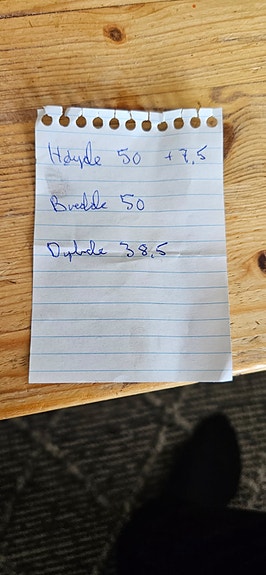 Høyde 50 +7,5
Bredde 50
Dybde 38,5